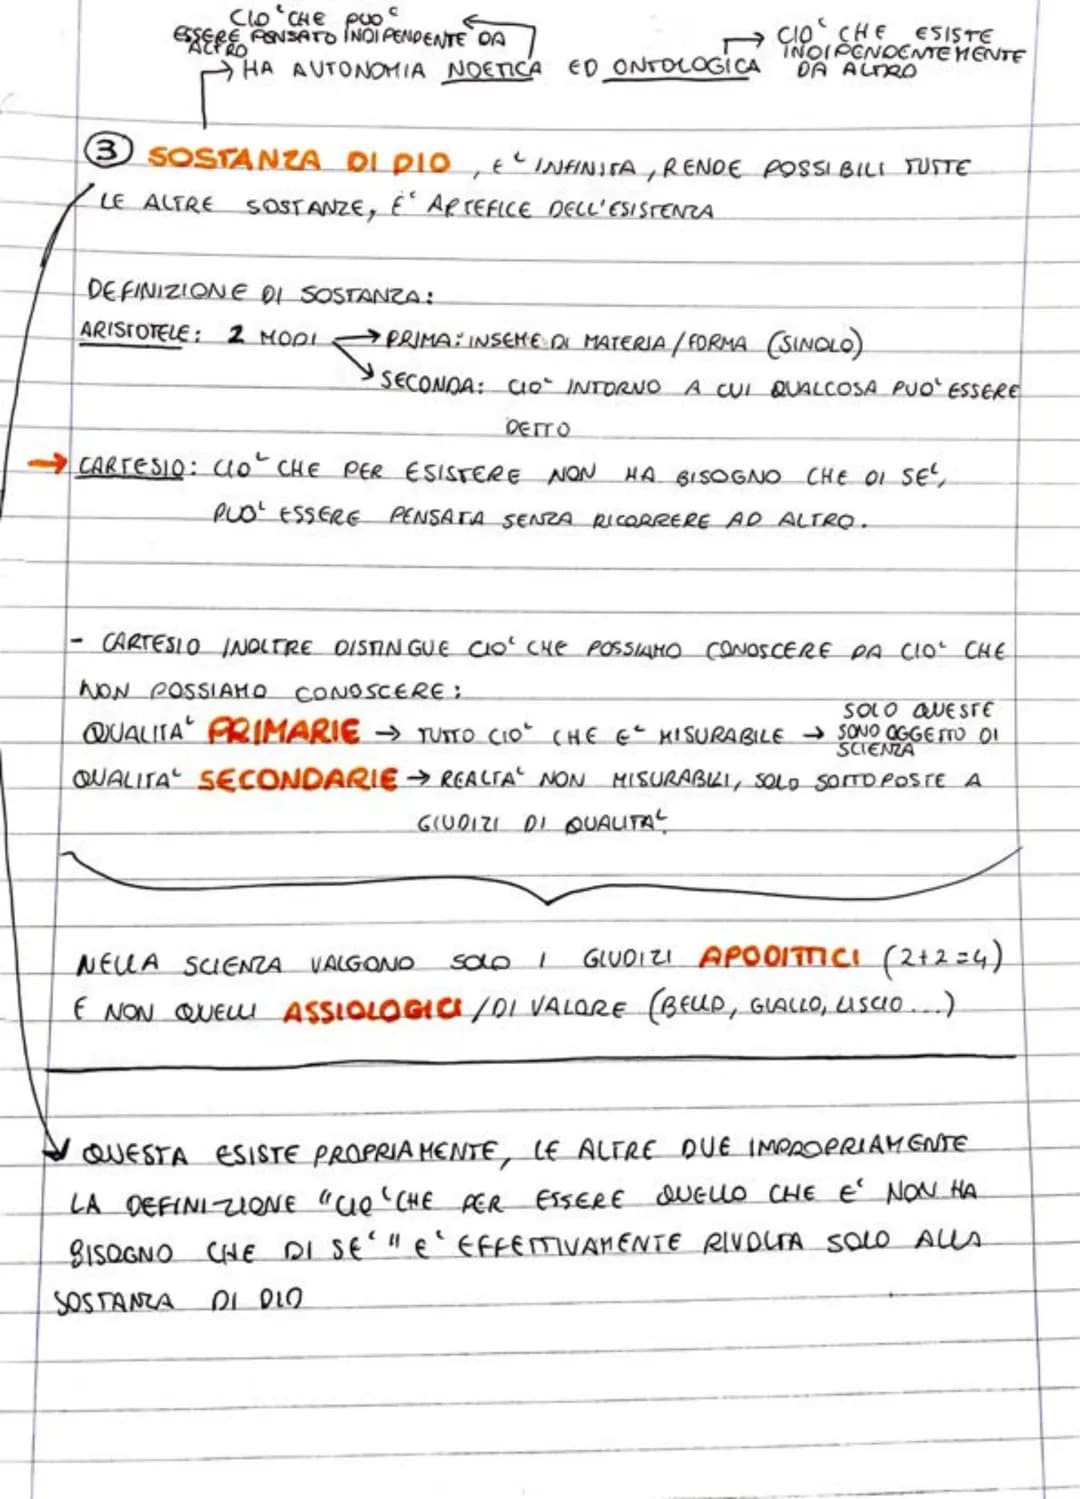 CIO' CHE PUO'
ESSERE PENSATO INDIPENDENTE DA
ALTRO
CIO' CHE ESISTE
INDIPENDENTEMENTE
DA ALTRO
HA AUTONOMIA NOETICA ED ONTOLOGICA
3 SOSTANZA DI DIO, E' INFINITA, RENDE POSSIBILI TUTTE
LE ALTRE SOSTANZE, E' ARTEFICE DELL'ESISTENZA
DEFINIZIONE DI SOSTANZA:
ARISTOTELE: 2 MODI → PRIMA: INSEME DI MATERIA/FORMA (SINOLO)
→ SECONDA: CIO' INTORNO A CUI QUALCOSA PUO' ESSERE
DETTO
→ CARTESIO: CIO' CHE PER ESISTERE NON HA BISOGNO CHE DI SE',
PUO' ESSERE PENSATA SENZA RICORRERE AD ALTRO.
- CARTESIO INOLTRE DISTINGUE CIO' CHE POSSIAMO CONOSCERE DA CIO' CHE
NON POSSIAMO CONOSCERE:
QUALITA' PRIMARIE → TUTTO CIO' CHE E' MISURABILE → SOLO QUESTE
SONO OGGETTO DI
SCIENZA
QUALITA' SECONDARIE → REALTA' NON MISURABILI, SOLO SOTTOPOSTE A
GIUDIZI DI QUALITA'
NELLA SCIENZA VALGONO SOLO I GIUDIZI APODITTICI (2+2=4)
E NON QUELLI ASSIOLOGICI/DI VALORE (BELLO, GIALLO, LISCIO...)
QUESTA ESISTE PROPRIAMENTE, LE ALTRE DUE IMPROPRIAMENTE
LA DEFINIZIONE "CIO' CHE PER ESSERE QUELLO CHE E' NON HA
BISOGNO CHE DI SE'" E' EFFETTIVAMENTE RIVOLTA SOLO ALLA
SOSTANZA DI DIO